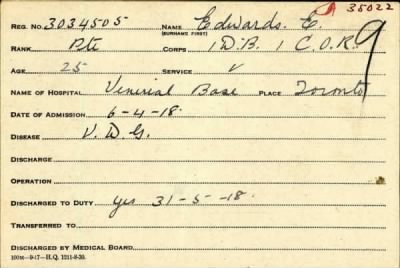 35022
REG. NO. 3034505 NAME Edwards. E.
(SURNAME FIRST)
RANK Pte CORPS 1 D.B. 1 C.O.R. 9
AGE 25 SERVICE
NAME OF HOSPITAL Venerial Base PLACE Toronto
DATE OF ADMISSION 6-4-18.
DISEASE V. D. G.
DISCHARGE
OPERATION
DISCHARGED TO DUTY yes 31-5-18.
TRANSFERRED TO
DISCHARGED BY MEDICAL BOARD
100M-9-17-H.Q. 1211-8-30.